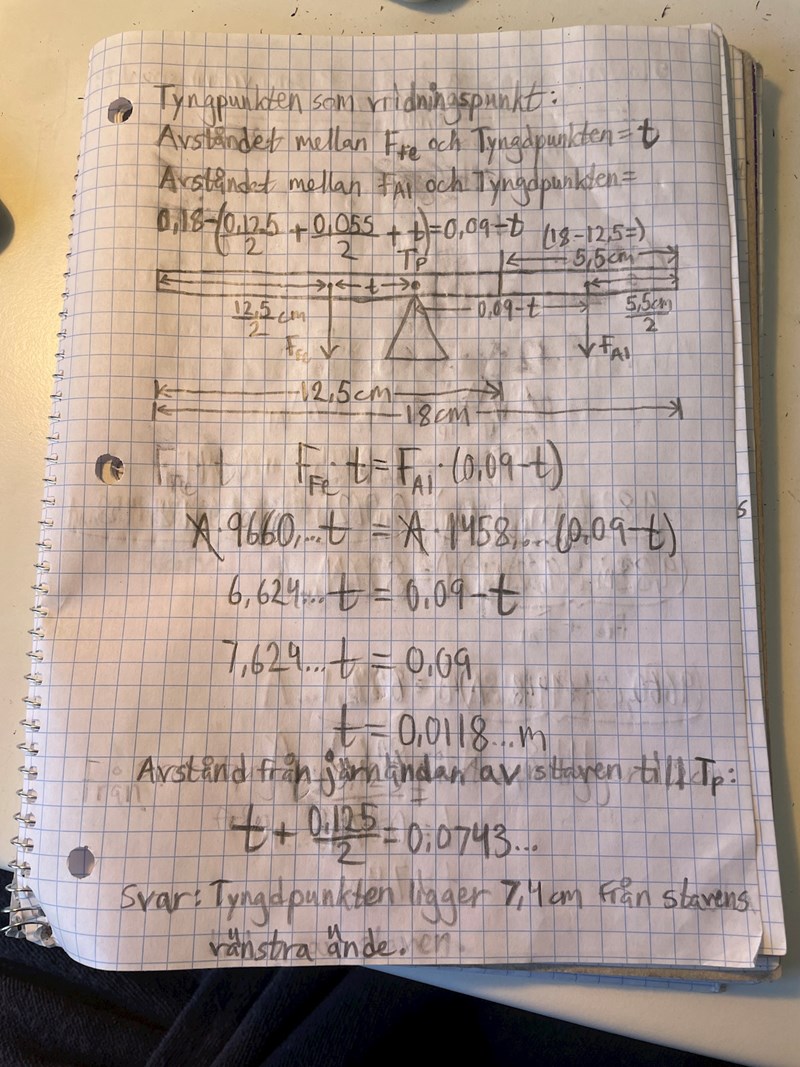 Tyngpunkten som vridningspunkt:
Avståndet mellan F_Fe och Tyngdpunkten = t
Avståndet mellan F_Al och Tyngdpunkten =
0,18-(0,125/2 + 0,055/2 + t)=0,09-t (18-12,5=)
Tp 5,5cm
t
12,5/2 cm 0,09-t 5,5cm/2
F_Fe F_Al
12,5cm
18cm
F_Fe · t = F_Al · (0,09-t)
A·9660,...t = A·1458,... (0,09-t)
6,624...t = 0,09-t
7,624...t = 0,09
t = 0,0118...m
Avstånd från järnändan av staven till Tp:
t + 0,125/2 = 0,0743...
Svar: Tyngdpunkten ligger 7,4cm från stavens
vänstra ände.